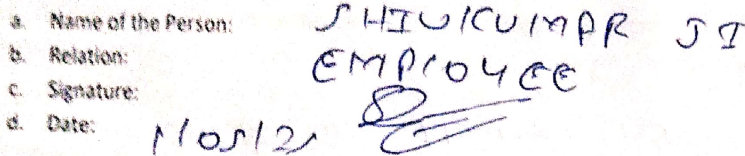 a. Name of the Person: SHIVKUMAR JI
b. Relation: EMPLOYEE
c. Signature:
d. Date: 1/05/21